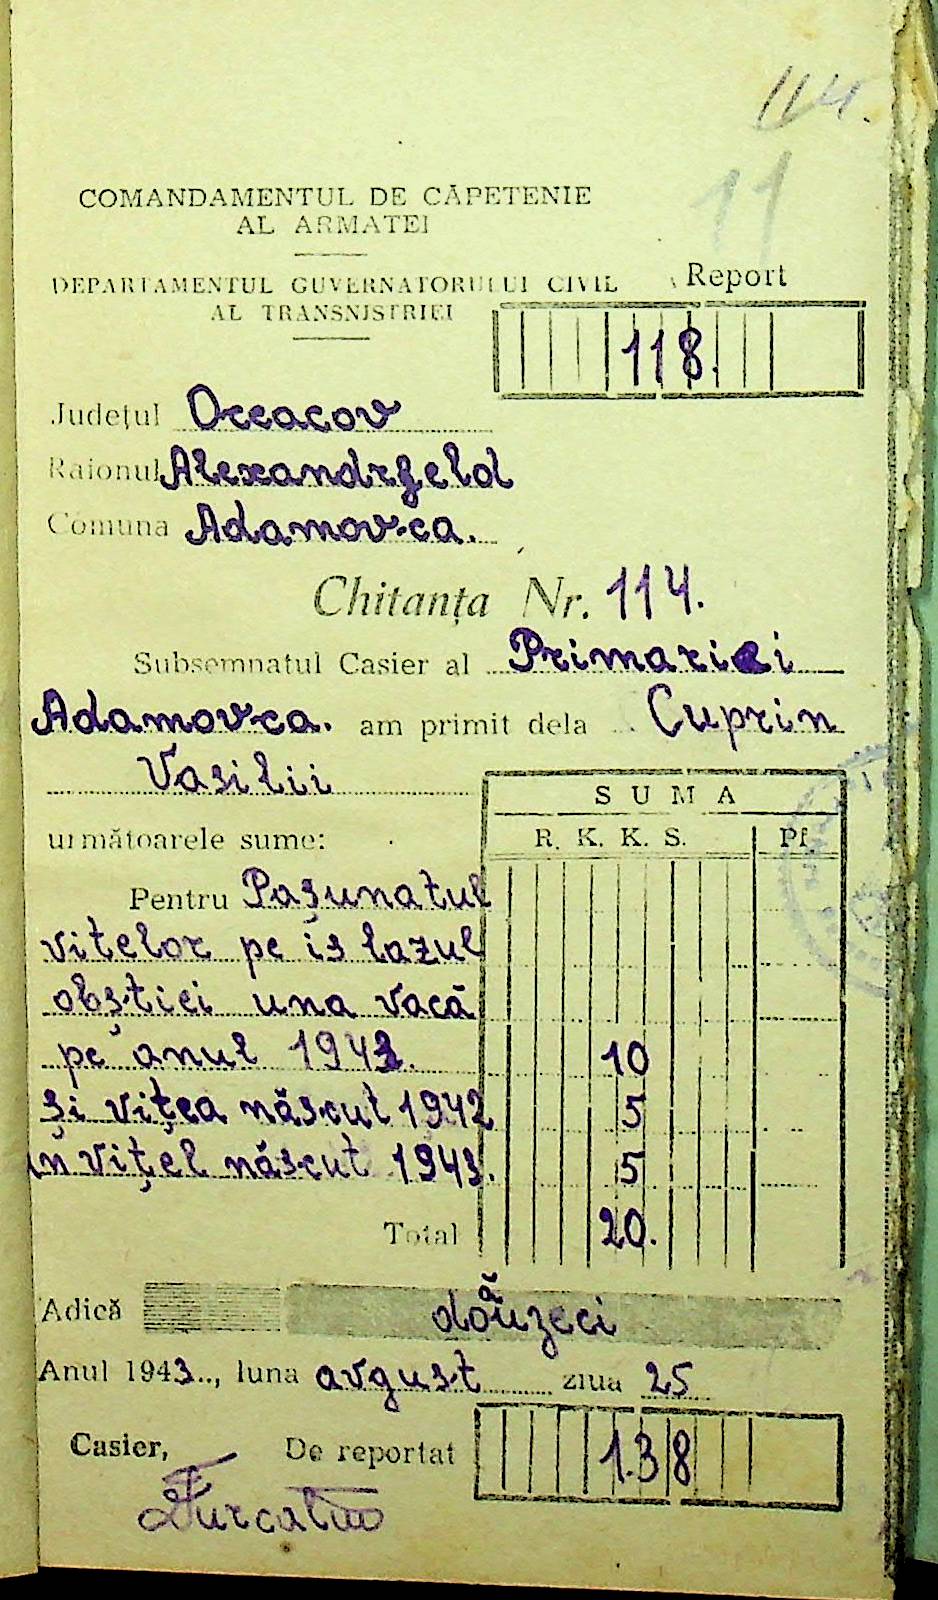 114.
11
COMANDAMENTUL DE CĂPETENIE
AL ARMATEI
DEPARTAMENTUL GUVERNATORULUI CIVIL
AL TRANSNISTRIEI
Report
118.
Județul Oceacov
Raionul Alexandrfeld
Comuna Adamovca.
Chitanța Nr. 114.
Subsemnatul Casier al Primariei
Adamovca. am primit dela Cuprin
Vasilii
următoarele sume:
SUMA
R. K. K. S. Pf.
Pentru Pașunatul
vitelor pe islazul
obștiei una vacă
pe anul 1943. 10
și vițea născut 1942 5
un vițel născut 1943. 5
Total 20.
Adică douăzeci
Anul 1943.., luna avgust ziua 25
Casier, De reportat 138